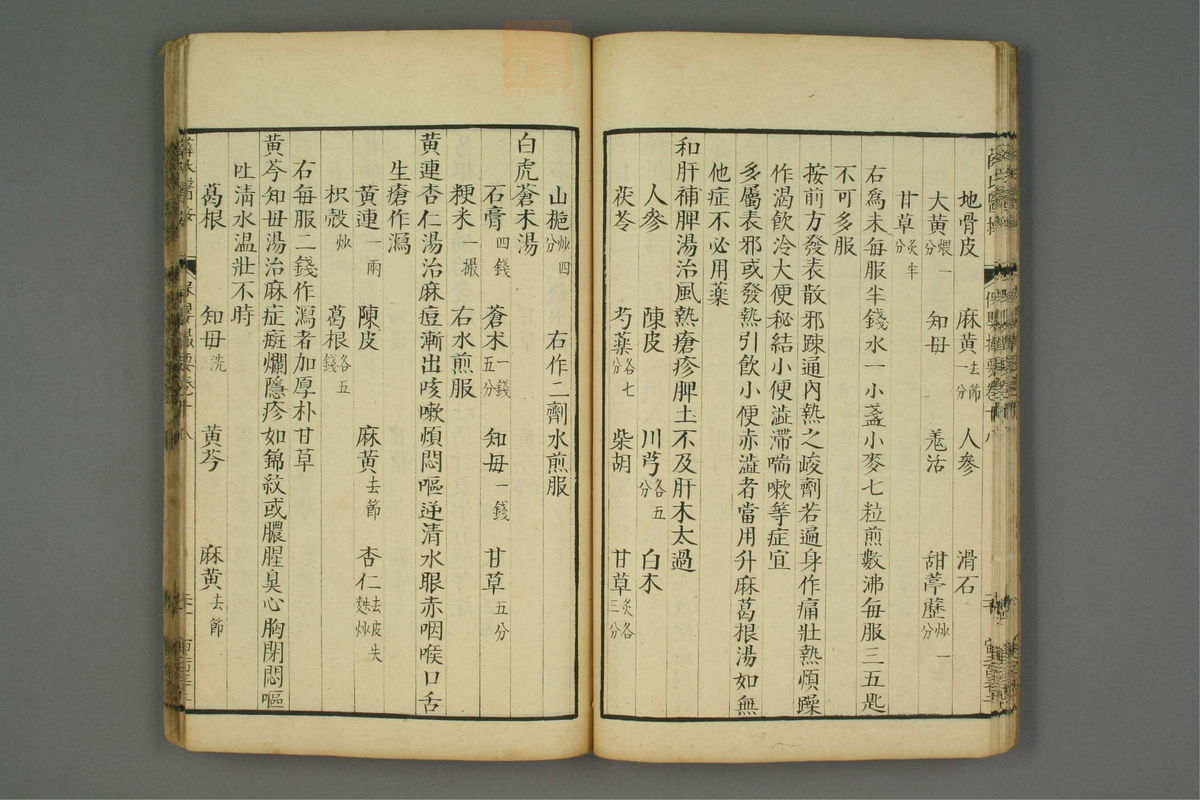 地骨皮　麻黄去節一分　人參　滑石
大黄煨一分　知母　羗活　甜葶藶炒一分
甘草炙半分
右爲末每服半錢水一小盞小麥七粒煎數沸每服三五匙
不可多服
按前方發表散邪踈通內熱之峻劑若遍身作痛壯熱煩躁
作渴飲冷大便秘結小便澁滯喘嗽等症宜
多屬表邪或發熱引飲小便赤澁者當用升麻葛根湯如無
他症不必用藥
和肝補脾湯治風熱瘡疹脾土不及肝木太過
人參　陳皮　川芎各五分　白术
茯苓　芍藥各七分　柴胡　甘草炙各三分
山梔炒四分　右作二劑水煎服
白虎蒼术湯
石膏四錢　蒼术一錢五分　知母一錢　甘草五分
粳米一撮　右水煎服
黄連杏仁湯治麻痘漸出咳嗽煩悶嘔逆清水眼赤咽喉口舌
生瘡作瀉
黄連一兩　陳皮　麻黄去節　杏仁去皮尖麸炒
枳殼炒　葛根各五錢
右每服二錢作瀉者加厚朴甘草
黄芩知母湯治麻症癍爛隱疹如錦紋或膿腥臭心胸閉悶嘔
吐清水温壯不時
葛根　知母洗　黄芩　麻黄去節